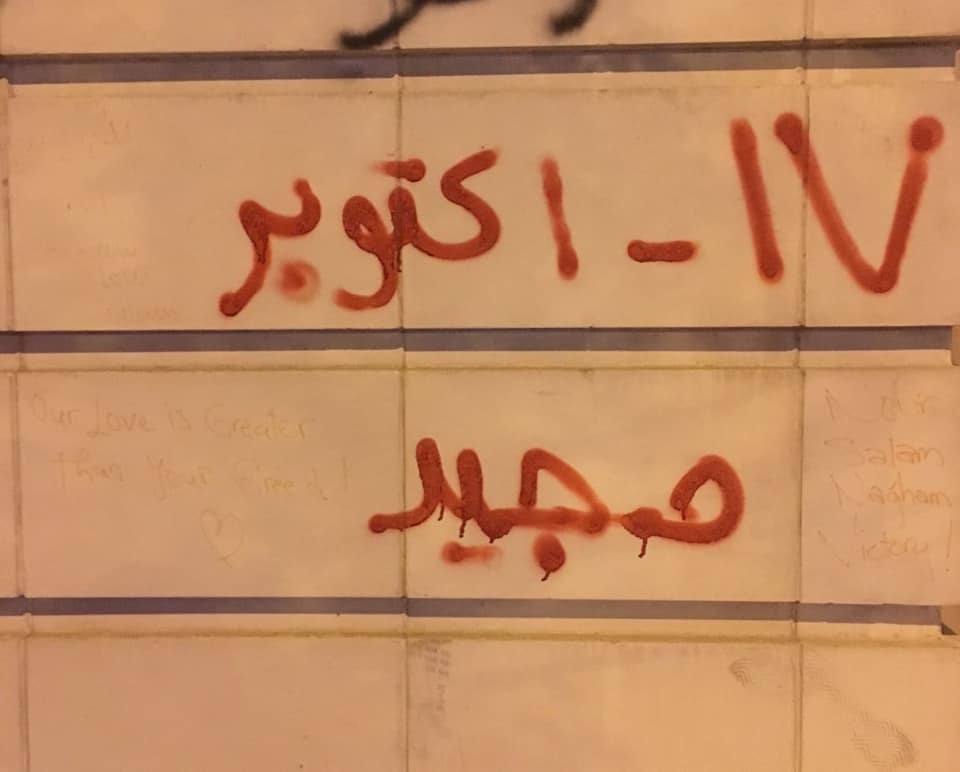 ١٧ - اكتوبر
مجيد
Our Love is Greater
than your Greed!
Salam
Nagham
Victory!